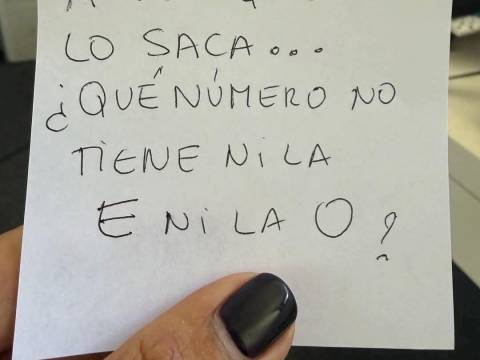 LO SACA...
¿QUÉ NÚMERO NO
TIENE NI LA
E NI LA O?